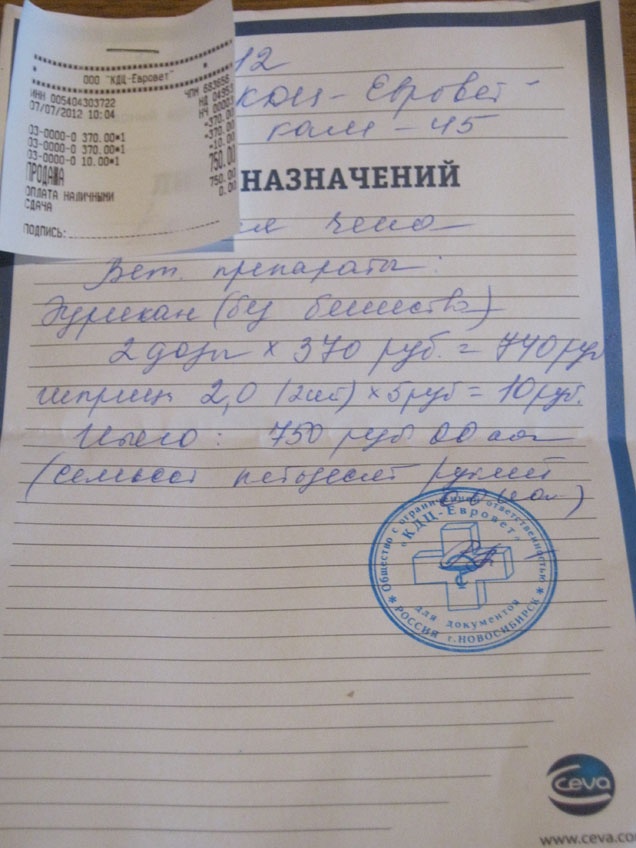 ООО "КДЦ-Евровет"
ИНН 005404303722 ЧПМ 683656
07/07/2012 10:04 НД 04953
НЧ 00003
03-0000-0 370.00*1 =370.00
03-0000-0 370.00*1 =370.00
03-0000-0 10.00*1 =10.00
ПРОДАЖА 750.00
ОПЛАТА НАЛИЧНЫМИ 750.00
СДАЧА 0.00
ПОДПИСЬ:
12
КДЦ - Евровет"
45
НАЗНАЧЕНИЙ
Вет. препараты:
Эурикан (без бешенства)
2 дозы × 370 руб. = 740 руб
шприцы 2,0 (2шт) × 5 руб = 10 руб.
Итого: 750 руб 00 коп
(семьсот пятьдесят рублей
00 коп)
Общество с ограниченной ответственностью
«КДЦ-Евровет»
для документов
* РОССИЯ г.НОВОСИБИРСК *
ceva
www.ceva.co